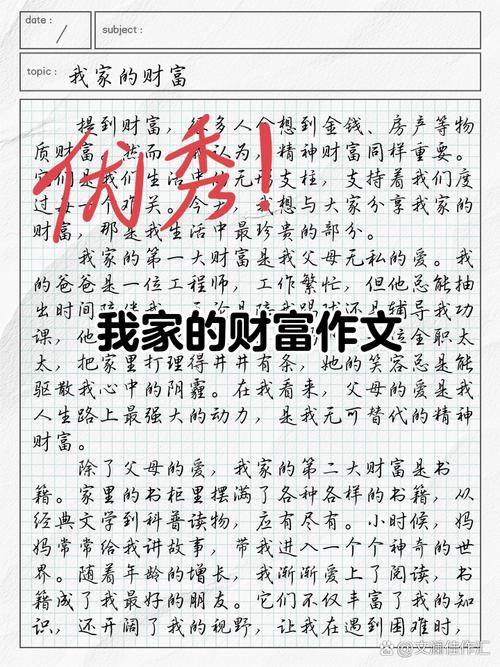 date:
subject:
topic: 我家的财富
提到财富，很多人会想到金钱、房产等物
质财富。然而，我认为，精神财富同样重要。
它们是我们生活中的无形支柱，支持着我们度
过每一个难关。今天，我想与大家分享我家的
财富，那是我生活中最珍贵的部分。
优秀！
我家的第一大财富是我父母无私的爱。我
的爸爸是一位工程师，工作繁忙，但他总能抽
出时间陪伴我。无论是陪我踢球还是辅导我功
课，他
位全职太
我家的财富作文
太，把家里打理得井井有条，她的笑容总是能
驱散我心中的阴霾。在我看来，父母的爱是我
人生路上最强大的动力，是我无可替代的精神
财富。
除了父母的爱，我家的第二大财富是书
籍。家里的书柜里摆满了各种各样的书籍，从
经典文学到科普读物，应有尽有。小时候，妈
妈常常给我讲故事，带我进入一个个神奇的世
界。随着年龄的增长，我渐渐爱上了阅读，书
籍成了我最好的朋友。它们不仅丰富了我的知
识，还开阔了我的视野，让我在遇到困难时，
@文澜佳作汇